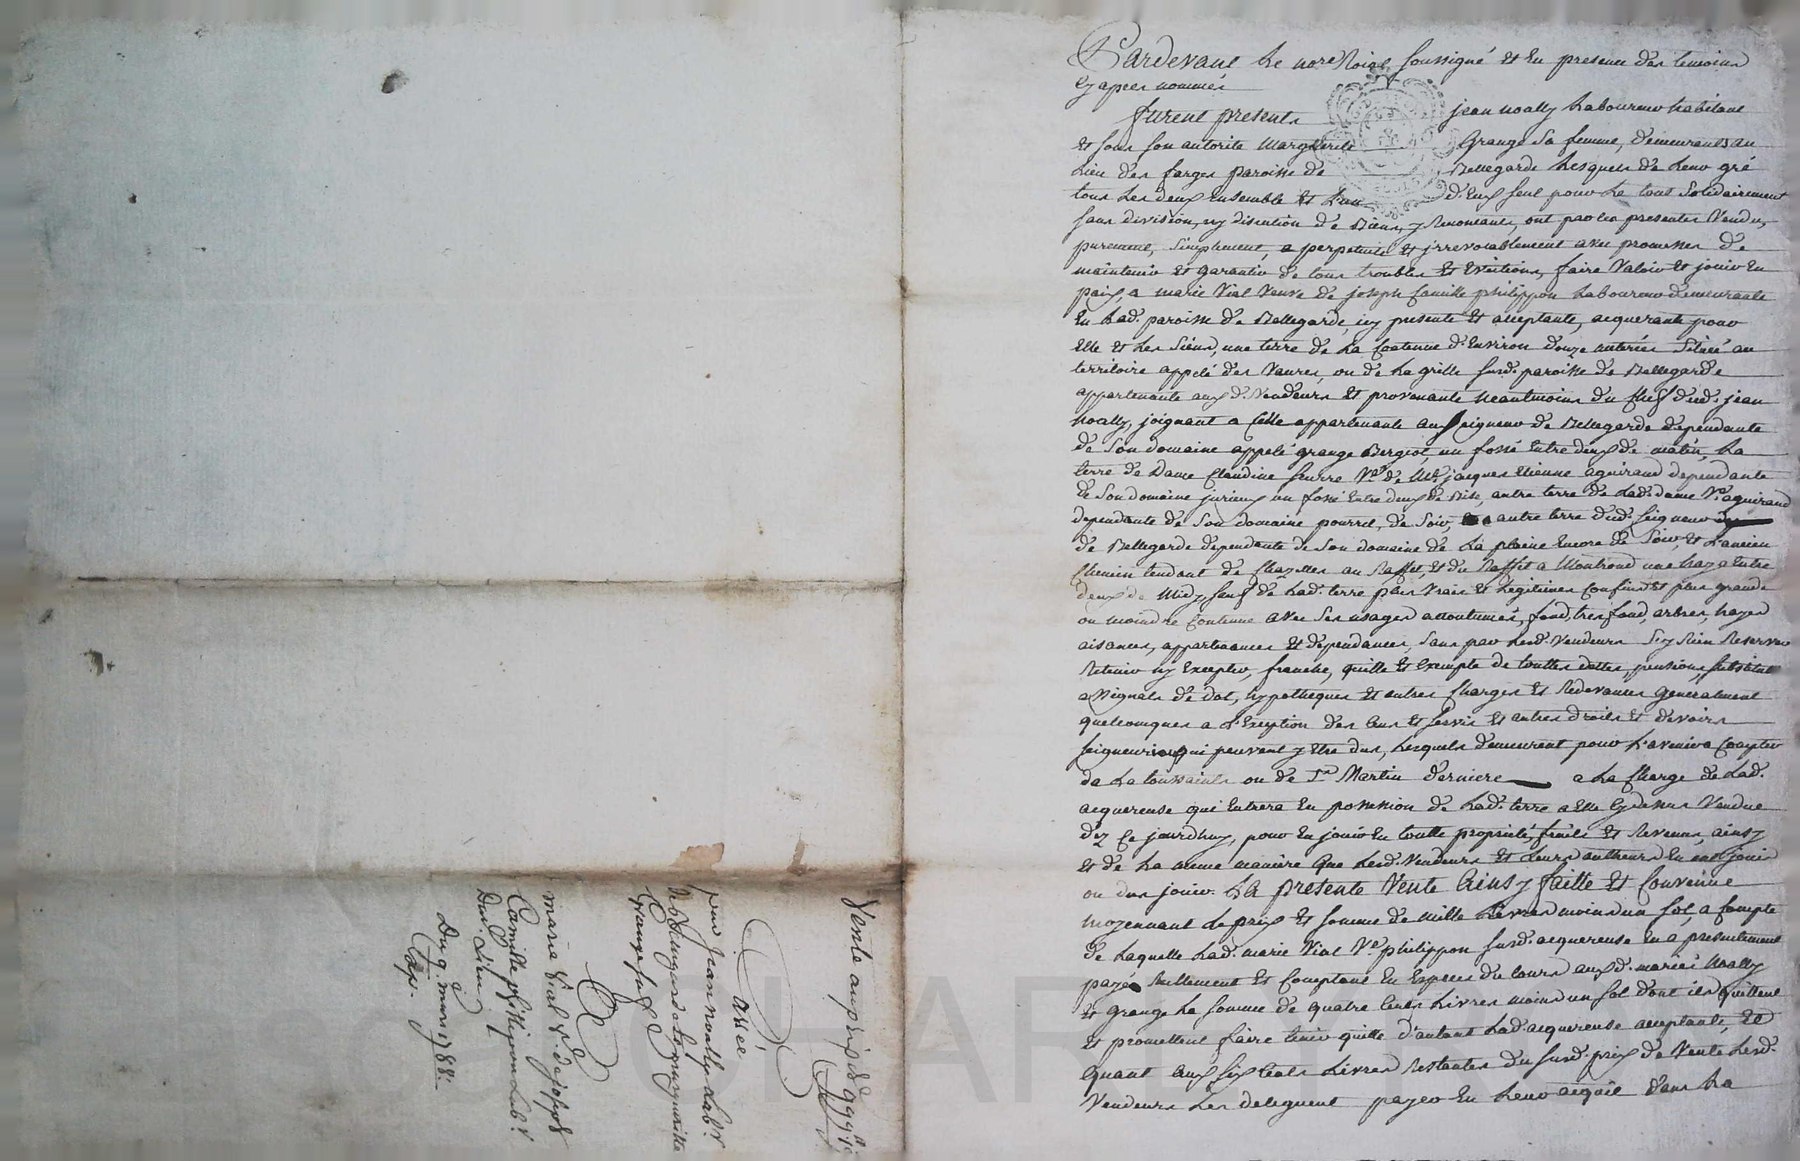 Pardevant Le no.re Roial soussigné et En presence des temoins
cy apres nommés
furent presents jean noally Laboureur habitant
et sous son autorite Marguerite Grange Sa femme, demeurants au
Lieu des farges paroisse de Bellegarde Lesquels de Leur gré
tous Les deux Ensemble et L'un d'Eux seul pour Le tout Solidairement
sans division, ny discution de Biens, y Renonçants, ont par Les presentes Vendu,
purement, Simplement, a perpetuité et jrrevocablement avec promesses de
maintenir et garantir de tous troubles et Evictions, faire Valoir et jouir En
paix, a marie Vial Veuve de joseph Camille philippon Laboureur demeurante
En Lad. paroisse de Bellegarde, icy presente et acceptante, acquerante pour
Elle et Les Siens, une terre de La Contenue d'Environ douze meterées Située au
territoire appelé des Vaures, ou de La grille susd. paroisse de Bellegarde
appartenante aux d. Vendeurs et provenante neantmoins du Chef dud. jean
noally, joignant a Celle appartenante au Seigneur de Bellegarde dependante
de Son domaine appelé grange Bergiot, un fossé Entre deux de matin, La
terre de Dame Claudine seurre V.e de M.e jacques Etienne aguiraud dependante
de Son domaine jurieux un fossé Entre deux de Bise, autre terre de Lad. dame V.e aguiraud
dependante de Son domaine pourret, de Soir, autre terre dud. Seigneur
de Bellegarde dependante de Son domaine de La plaine Encore de Soir, et L'ancien
Chemin tendant de Chazelles au Raffet, et du Raffet a Montrond une haye Entre
deux de Midy, sauf de Lad. terre plus Vrais et Legitimes Confins et plus grande
ou moindre Contenue avec Ses usages accoutumés, fond, tres fond, arbres, hayes
aisances, appartenances et dependances, Sans par Lesd. Vendeurs S'y Rien Reserver
Retenir ny Excepter, franche, quitte et Exempte de touttes dettes, pensions, substitut
assignats de dot, hypotheques et autres Charges et Redevances generalement
quelconques a L'Exeption des Cens et servis et autres droits et devoirs
seigneuriaux qui peuvent y Etre dus, Lesquels demeurent pour L'avenir a Compter
de La toussaints ou de S.t Martin derniere a La Charge de Lad.
acquereuse qui Entrera En possession de Lad. terre a Elle Cydessus Vendue
dez Ce jourdhuy, pour En jouir En toutte proprieté, fruits et Revenus, ainsy
et de La meme maniere que Lesd. Vendeurs et Leurs autheurs En ont joui
ou dus jouir. La presente Vente Ainsy faitte et Convenue
moyennant Le prix et somme de mille Livres moins un sol, a Compte
de Laquelle Lad. marie Vial V.e philippon susd. acquereuse En a presentement
payé Reellement et Comptant En Especes du Cours aux d. mariés Noally
et grange La somme de quatre Cents Livres moins un sol dont ils quittent
et promettent faire tenir quitte d'autant Lad. acquereuse acceptante, Et
quant aux six Cents Livres Restantes du susd. prix de Vente Lesd.
Vendeurs Les deleguent payer En Leur acquit dans La
Vente au prix de 999# 19
passée
par jean noally Lab.r
margueritte
Grange sa femme
a
marie Vial V.e de joseph
Camille philippon Lab.r
dud. lieu
Du 9 mars 1788.